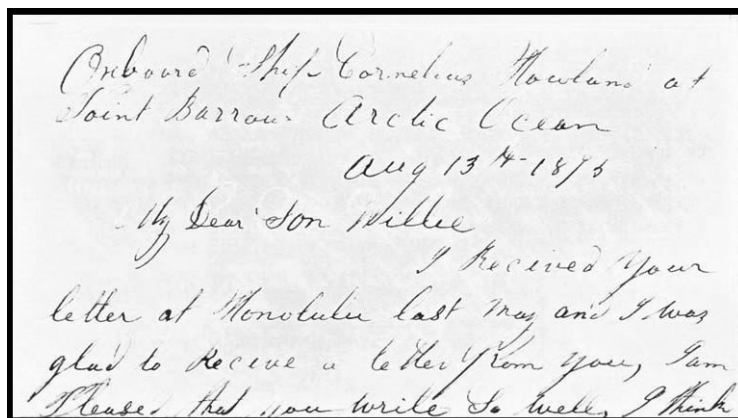 Onboard Ship Cornelius Howland at
Point Barrow Arctic Ocean
Aug 13th 1875
My Dear Son Willie
I Received Your
letter at Honolulu last May and I was
glad to Recive a letter from you, I am
Pleased that you write So well, I think